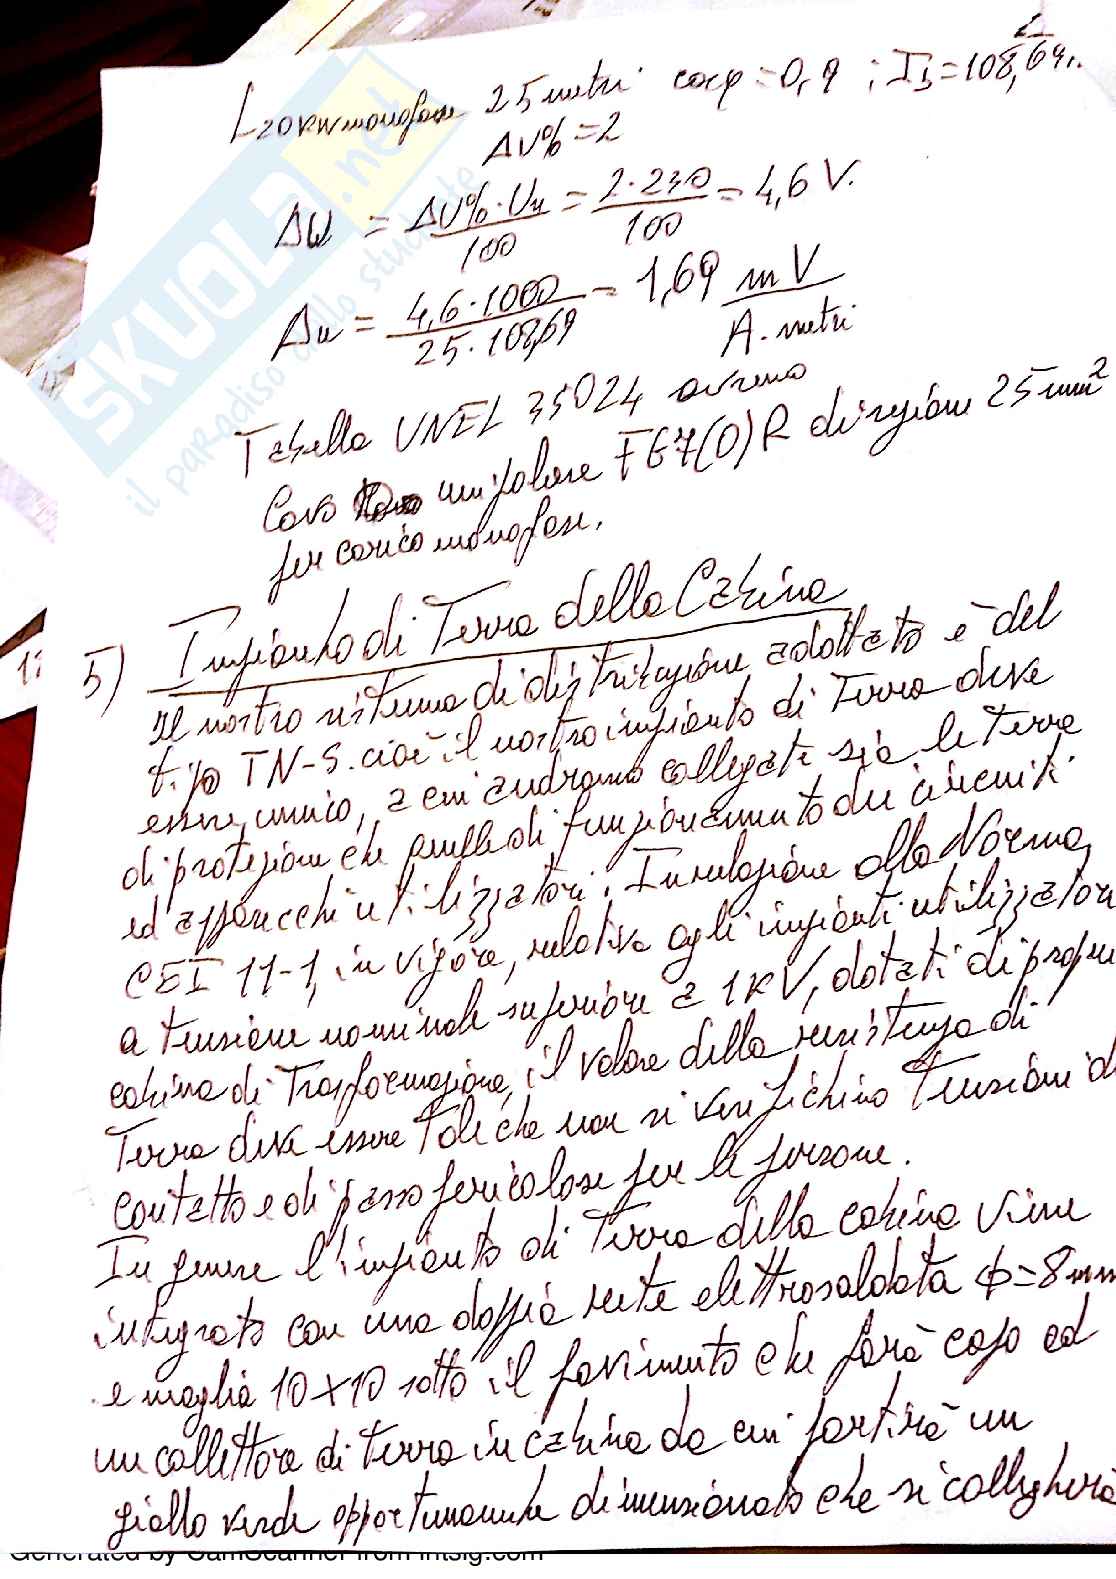 L20KW monofase 25 metri cosφ=0,9 ; I3=108,69
ΔV%=2
ΔU = ΔV%·Un / 100 = 2·230 / 100 = 4,6 V.
Δu = 4,6·1000 / 25·108,69 = 1,69 mV / A·metri
Tabella UNEL 35024 avremo
Cavo unipolare FG7(O)R di sezione 25mm²
per carico monofase.
5) Impianto di Terra della Cabina
Il nostro sistema di distribuzione adottato è del
tipo TN-S. cioè il nostro impianto di Terra deve
essere unico, a cui andranno collegate sia le terre
di protezione che quelle di funzionamento dei circuiti
ed apparecchi utilizzatori. In relazione alla Norma
CEI 11-1, in vigore, relativa agli impianti utilizzatori
a tensione nominale superiore a 1kV, dotati di propri
cabina di Trasformazione, il valore della resistenza di
Terra deve essere Tale che non si verifichino Tensioni di
contatto e di passo pericolose per le persone.
In genere l'impianto di Terra della cabina viene
integrato con una doppia rete elettrosaldata φ=8mm
e maglia 10x10 sotto il pavimento che farà capo ad
un collettore di terra in cabina da cui partirà un
giallo verde opportunamente dimensionato che si collegherà
Generated by CamScanner from intsig.com
SKUOLA.net
il paradiso dello studente